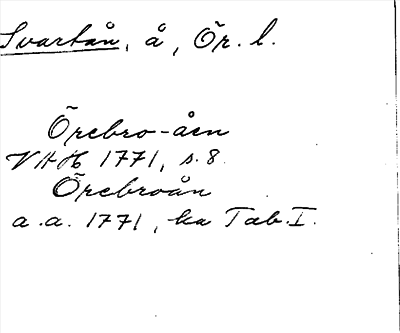 Svartån, å, Ör. l.
Örebro-åen
VAH 1771, s. 8
Örebroån
a.a. 1771, ka Tab. I.